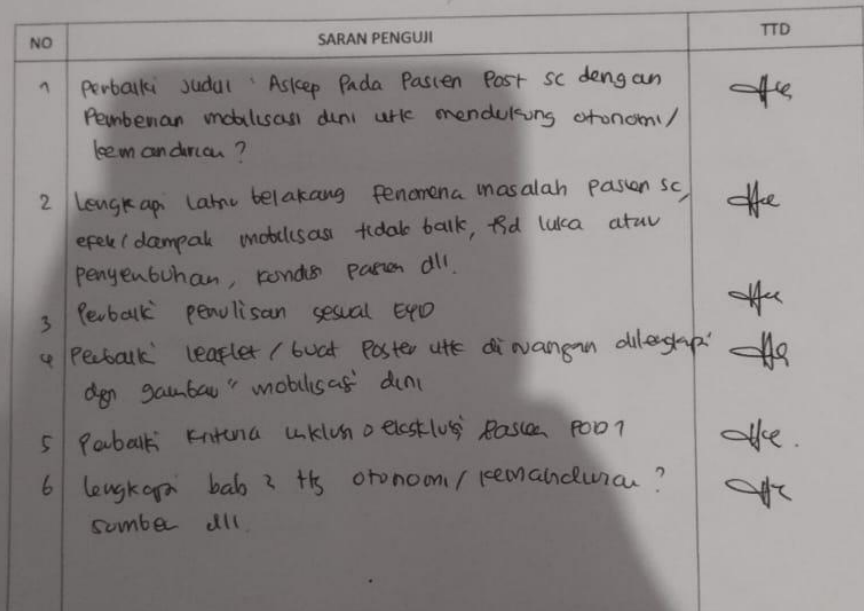 NO SARAN PENGUJI TTD
1 Perbaiki Judul : Askep Pada Pasien Post SC dengan
Pemberian mobilisasi dini utk mendukung otonomi/
kemandirian ?
2 Lengkapi latar belakang fenomena masalah pasien SC,
efek/dampak mobilisasi tidak baik, thd luka atau
penyembuhan, kondisi pasien dll.
3 Perbaiki penulisan sesuai EYD
4 Perbaiki leaflet / buat Poster utk di ruangan dilengkapi
dgn gambar" mobilisasi dini
5 Perbaiki kriteria inklusi & eksklusi Pasien POD 1
6 Lengkapi bab 2 ttg otonomi/kemandirian ?
sumber dll.